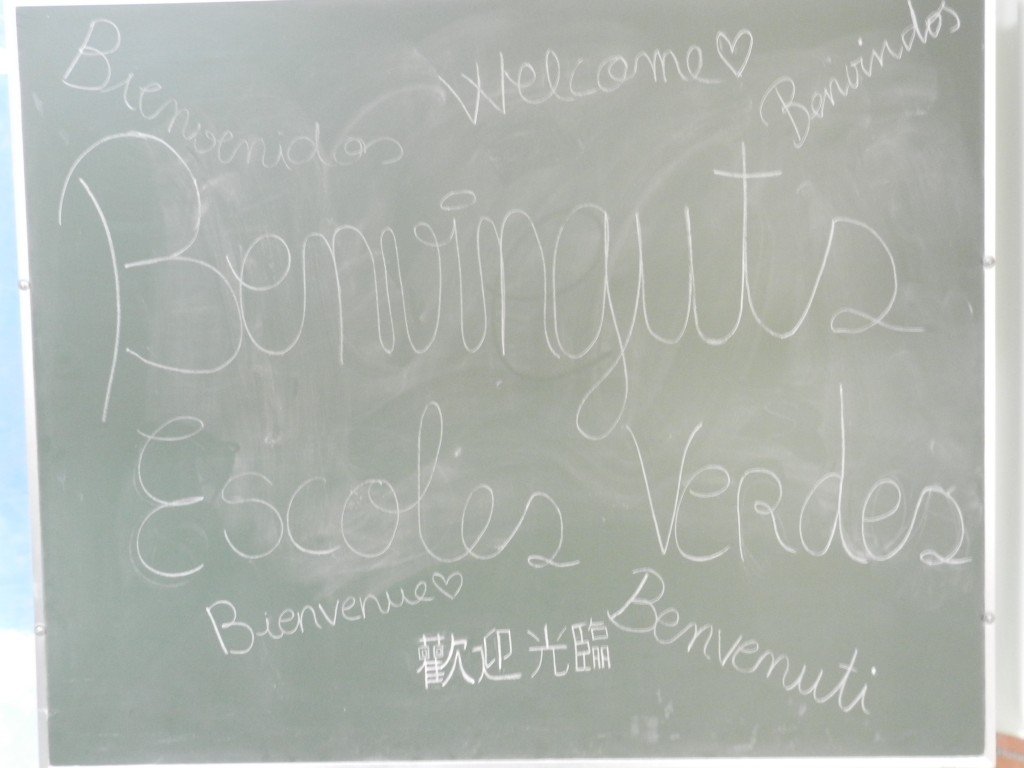 Bienvenidos
Welcome♡
Benvindos
Benvinguts
Escoles Verdes
Bienvenue♡
歡迎光臨
Benvenuti